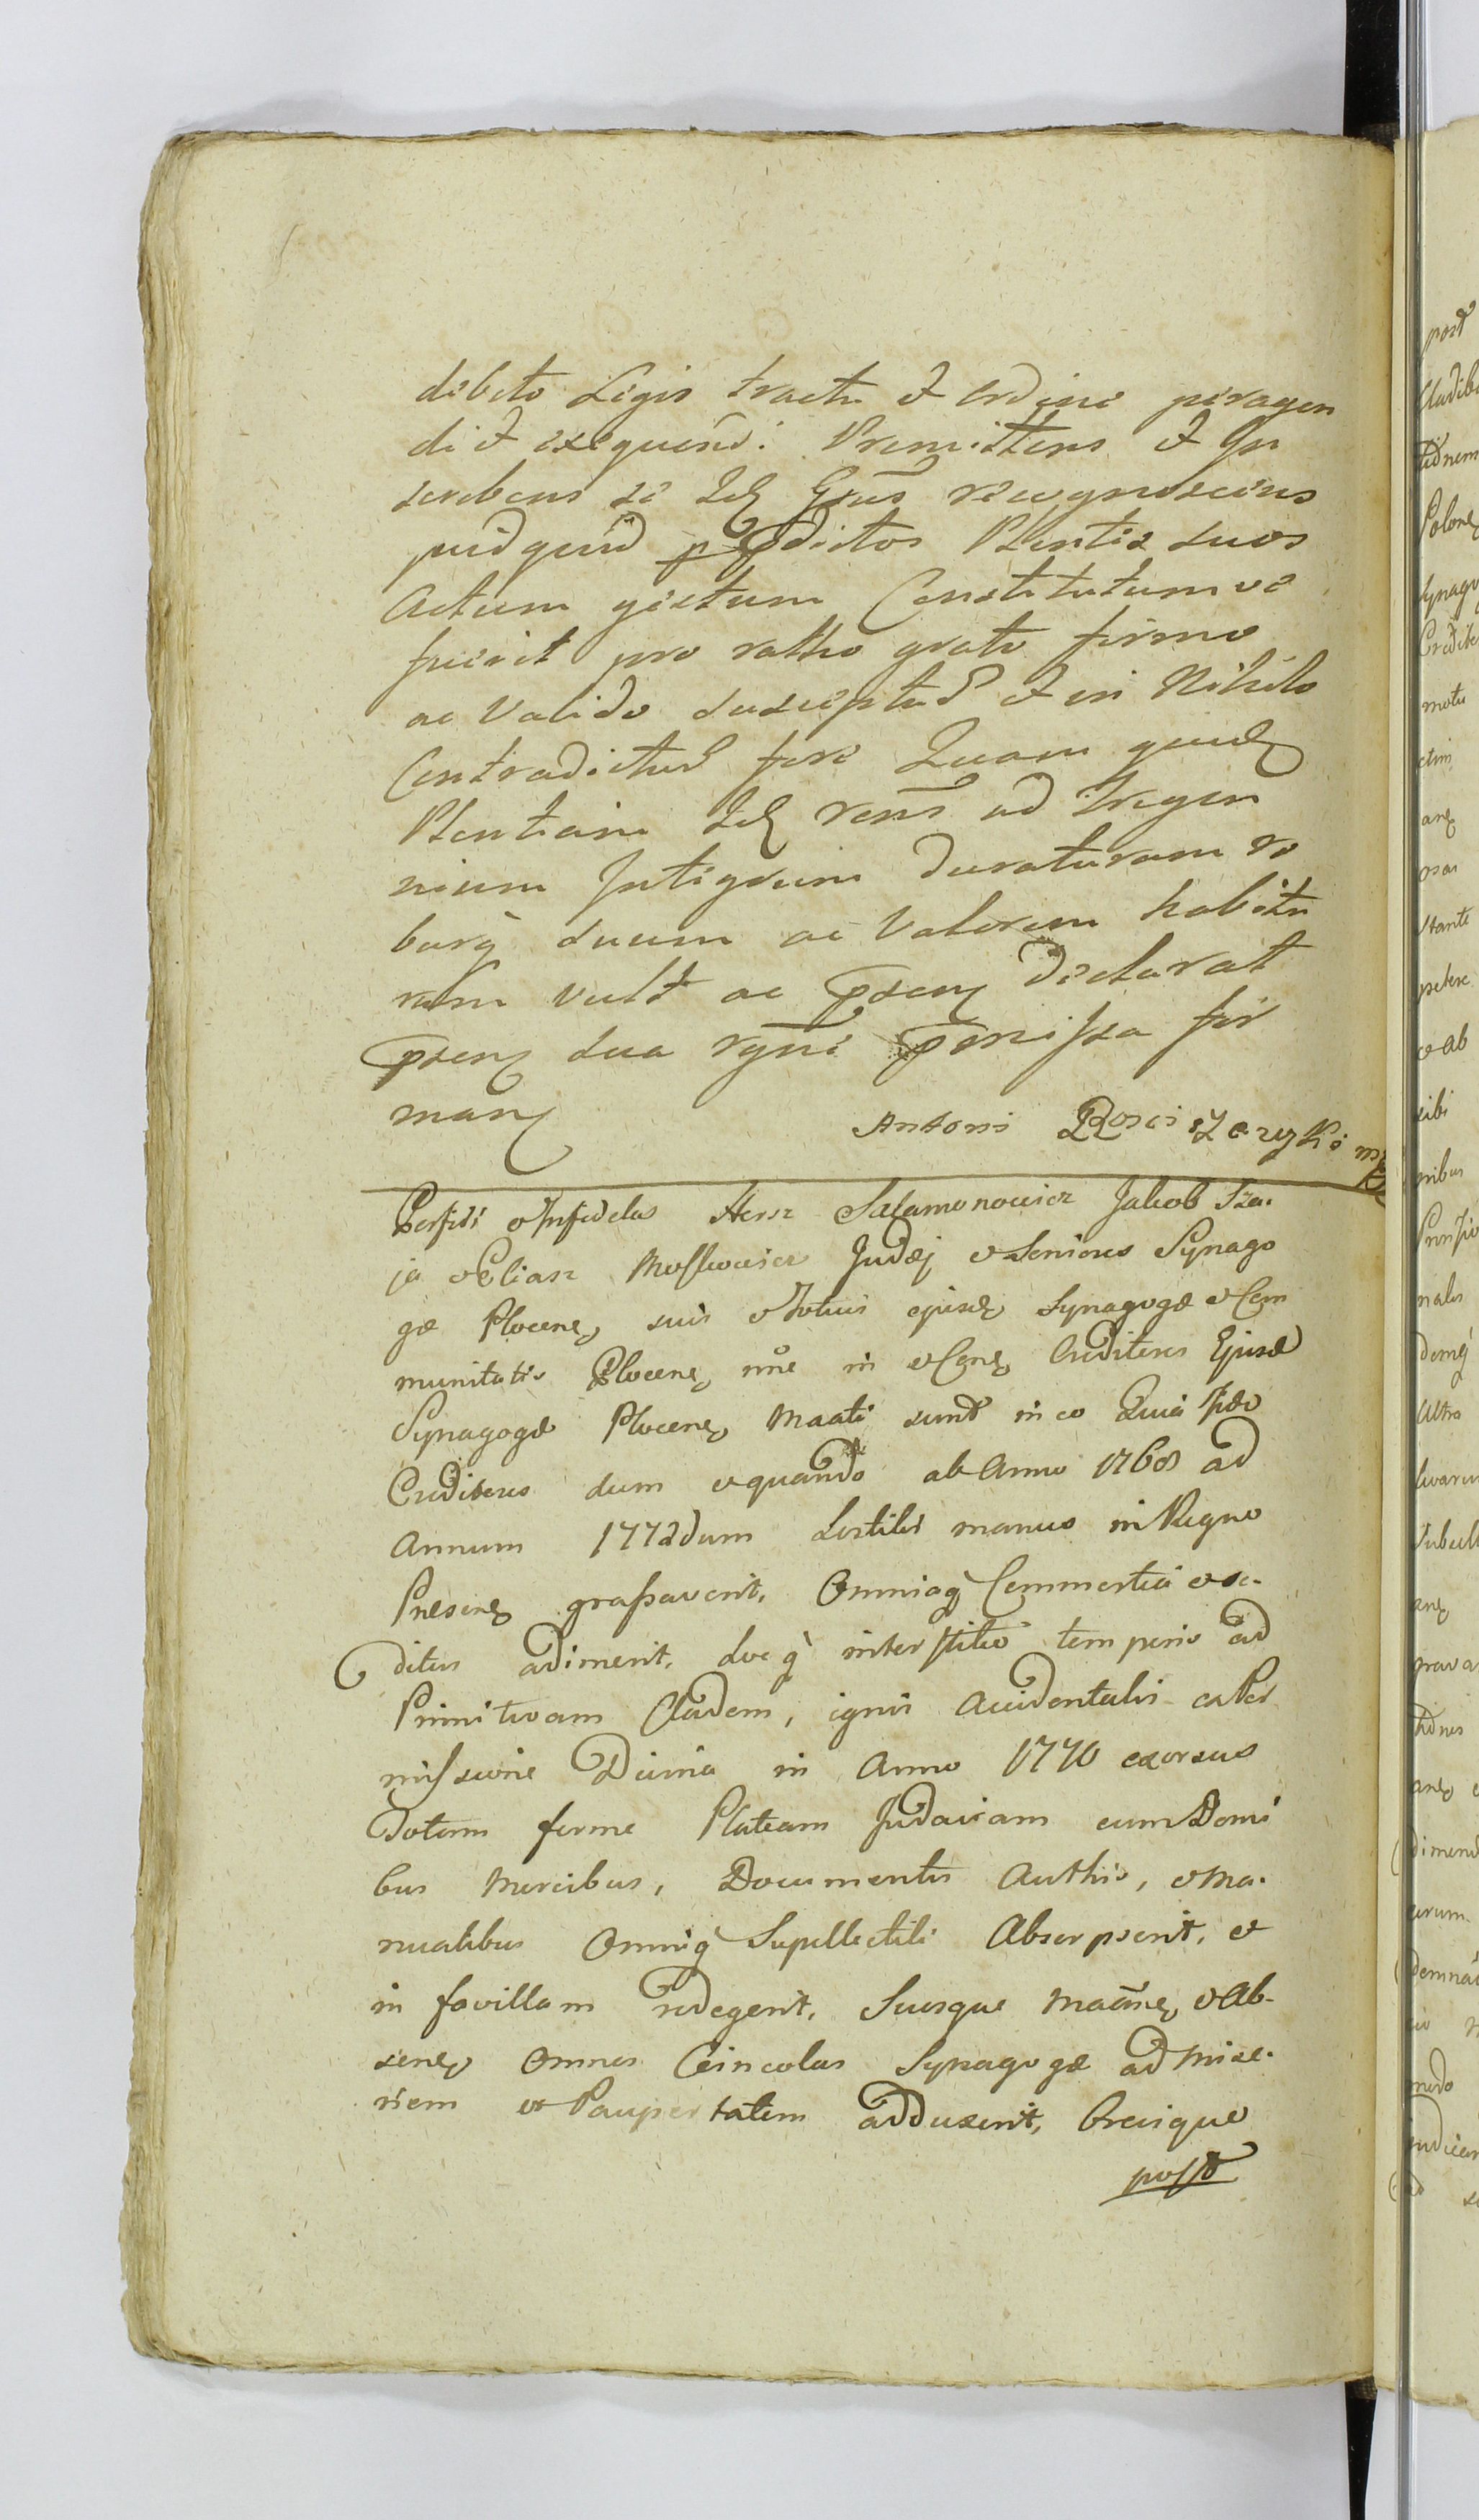 debito Legis tractu et ordine peragen
di et exequend: Promittens et In
scribens se Idq Gnus recognoscens
quidquid pdictos Plentes suos
Actum gestum Constitutumve
fuerit pro ratho grato firmo
ac valido susceptud et in Nihilo
Contradictud fore Quam quidq
Plentiam Idq rens ad Trigen
nium Integrum duraturam ro
burq suum ac Valorem habitu
ram vult ac psenq declarat
psenq sua rgni pmissa fir
manq
Antoni Rosciszewski mp
Perfidi et Infideles Hersz Salamonowicz Jakob Sza.
ja et Eliasz Moskowicz Judæj et Seniores Synago
gæ Plocenq suis et totius ejusdq Synagogæ et Com
munitatis Plocenq nne in et Cenq Creditores Ejusd
Synagogæ Plocenq Maati sunt in eo Quia Ipso
Creditores dum et quando ab Anno 1768 ad
Annum 1772dum hostiles manus in Regno
Presenq grassaverit, Omniaq Commertia et re-
ditus adimerit, hoc q interstitio temporis ad
Primitivam Cladem, ignis Accidentalis ex Per
missione Divina in Anno 1770 exorsus
totam ferme Plateam Judaicam cum Domi
bus Mercibus, Documentis Authis, et Ma.
nualibus Omniq Supellectili Absorpserit, et
in favillam redegerit, Suosque Maanq et Ab-
senq Omnes Cincolas Synagogæ ad Mise.
riem et Paupertatem adduxerit, Breuique
post